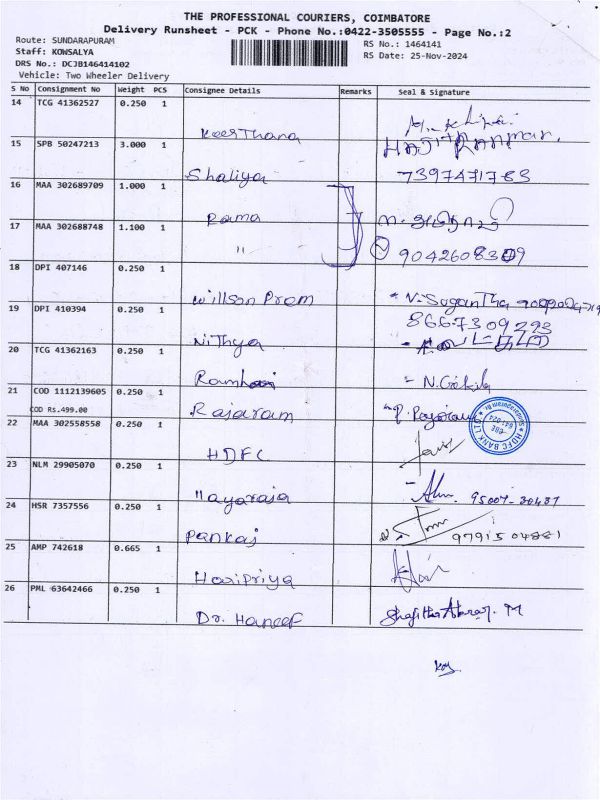 THE PROFESSIONAL COURIERS, COIMBATORE
Delivery Runsheet - PCK - Phone No.:0422-3505555 - Page No.:2
Route: SUNDARAPURAM
RS No.: 1464141
Staff: KOWSALYA
RS Date: 25-Nov-2024
DRS No.: DCJB146414102
Vehicle: Two Wheeler Delivery
S No Consignment No Weight PCS Consignee Details Remarks Seal & Signature
14 TCG 41362527 0.250 1
KeerThana
15 SPB 50247213 3.000 1
Shaliya 7397471783
16 MAA 302689709 1.000 1
Rama
17 MAA 302688748 1.100 1
"
18 DPI 407146 0.250 1
Willson Prem
19 DPI 410394 0.250 1 8667309293
Nithya
20 TCG 41362163 0.250 1
21 COD 1112139605 0.250 1
COD Rs.499.00 Rajaram
22 MAA 302558558 0.250 1
HDFC
23 NLM 29905070 0.250 1
24 HSR 7357556 0.250 1
Pankaj 9791504881
25 AMP 742618 0.665 1
Haripriya
26 PML 63642466 0.250 1
Dr. Haneef